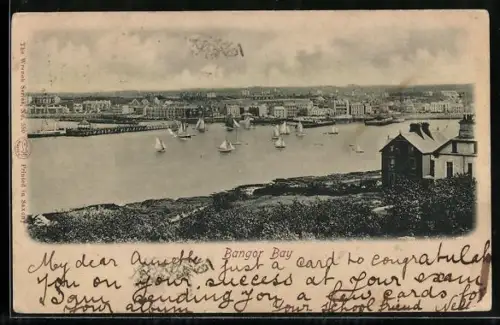 The Wrench Series, No.
Printed in Saxony
Bangor Bay
My dear Annette, Just a card to congratulate
you on your success at your exam
I am sending you a few cards for
your album your school friend Nell